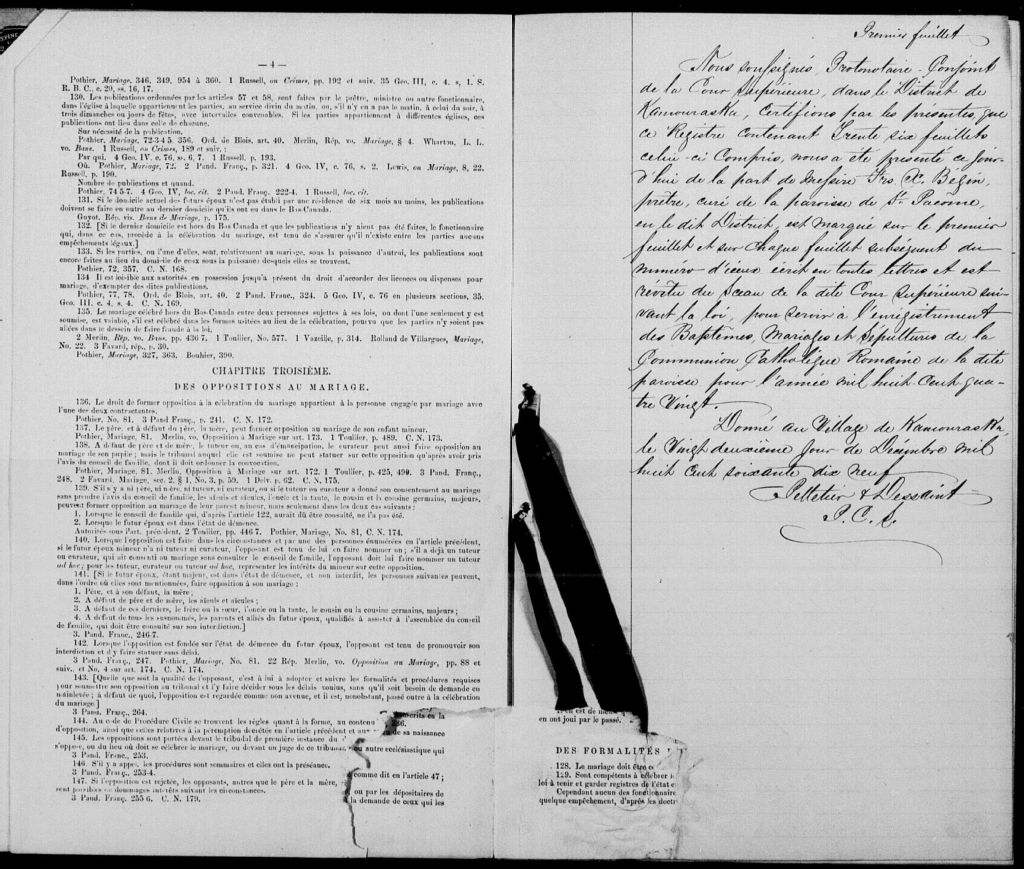 — 4 —
Pothier, Mariage, 346, 349, 954 à 360. 1 Russell, on Crimes, pp. 192 et suiv. 35 Geo. III, c. 4. s, 1. S.
R. B. C., c. 20, ss. 16, 17.
130. Les publications ordonnées par les articles 57 et 58, sont faites par le prêtre, ministre ou autre fonctionnaire,
dans l'église à laquelle appartiennent les parties, au service divin du matin, ou, s'il n'y en a pas le matin, à celui du soir, à
trois dimanches ou jours de fêtes, avec intervalles convenables. Si les parties appartiennent à différentes églises, ces
publications ont lieu dans celle de chacune.
Sur nécessité de la publication.
Pothier, Mariage, 72-3-4 5. 356. Ord. de Blois, art. 40. Merlin, Rép, vo. Mariage, § 4. Wharton, L. L.
vo. Bans. 1 Russell, on Crimes, 189 et suiv. ;
Par qui. 4 Geo. IV. c. 76, ss. 6, 7. 1 Russell, p. 193.
Où. Pothier, Mariage, 72. 2 Pand. Franç., p. 321. 4 Geo. IV, c. 76, s. 2. Lewis, on Mariage, 8, 22.
Russell, p. 190.
Nombre de publications et quand.
Pothier, 74 5-7. 4 Geo. IV, loc. cit. 2 Pand. Franç. 222-4. 1 Russell, loc. cit.
131. Si le domicile actuel des futurs époux n'est pas établi par une résidence de six mois au moins, les publications
doivent se faire en outre au dernier domicile qu'ils ont eu dans le Bas-Canada.
Guyot, Rép. vis. Bans de Mariage, p. 175.
132. [Si le dernier domicile est hors du Bas Canada et que les publications n'y aient pas été faites, le fonctionnaire
qui, dans ce cas, procède à la célébration du mariage, est tenu de s'assurer qu'il n'existe entre les parties aucuns
empêchements légaux.]
133. Si les parties, ou l'une d'elles, sont, relativement au mariage, sous la puissance d'autrui, les publications sont
encore faites au lieu du domicile de ceux sous la puissance desquels elles se trouvent.
Pothier, 72, 357. C. N. 168.
134 Il est loisible aux autorités en possession jusqu'à présent du droit d'accorder des licences ou dispenses pour
mariage, d'exempter des dites publications.
Pothier, 77, 78. Ord. de Blois, art. 40. 2 Pand. Franc., 324. 5 Geo. IV, c. 76 en plusieurs sections, 35.
Geo. III. c. 4, s. 4. C. N. 169.
135. Le mariage célébré hors du Bas-Canada entre deux personnes sujettes à ses lois, ou dont l'une seulement y est
soumise, est valable, s'il est célébré dans les formes usitées au lieu de la célébration, pourvu que les parties n'y soient pas
allées dans le dessein de faire fraude à la loi.
2 Merlin, Rép. vo. Bans. pp. 436 7. 1 Toullier, No. 577. 1 Vazeille, p. 314. Rolland de Villargues, Mariage,
No. 22. 3 Favard, rép., p. 30.
Pothier, Mariage, 327, 363. Bouhier, 390.
CHAPITRE TROISIÈME.
DES OPPOSITIONS AU MARIAGE.
136. Le droit de former opposition à la célébration du mariage appartient à la personne engagée par mariage avec
l'une des deux contractantes.
Pothier, No. 81. 3 Pand Franç., p. 241. C. N. 172.
137. Le père, et à défaut du père, la mère, peut former opposition au mariage de son enfant mineur.
Pothier, Mariage, 81. Merlin, vo. Opposition à Mariage sur art. 173. 1 Toullier, p. 489. C. N. 173.
138. A défaut de père et de mère, le tuteur ou, au cas d'émancipation, le curateur peut aussi faire opposition au
mariage de son pupille ; mais le tribunal auquel elle est soumise ne peut statuer sur cette opposition qu'après avoir pris
l'avis du conseil de famille, dont il doit ordonner la convocation.
Pothier, Mariage, 81. Merlin, Opposition à Mariage sur art. 172. 1 Toullier, p. 425, 490. 3 Pand. Franç.,
248. 2 Favard, Mariage, sec. 2. § 1, No. 3, p. 59. 1 Delv. p. 62. C. N. 175.
139. S'il n'y a ni père, ni mère, ni tuteur, ni curateur, ou si le tuteur ou curateur a donné son consentement au mariage
sans prendre l'avis du conseil de famille, les aïeuls et aïeules, l'oncle et la tante, le cousin et la cousine germains, majeurs,
peuvent former opposition au mariage de leur parent mineur, mais seulement dans les deux cas suivants :
1. Lorsque le conseil de famille qui, d'après l'article 122, aurait dû être consulté, ne l'a pas été.
2. Lorsque le futur époux est dans l'état de démence.
Autorités sous l'art. précédent. 2 Toullier, pp. 446 7. Pothier, Mariage, No. 81, C. N. 174.
140. Lorsque l'opposition est faite dans les circonstances et par une des personnes énumérées en l'article précédent,
si le futur époux mineur n'a ni tuteur ni curateur, l'opposant est tenu de lui en faire nommer un ; s'il a déjà un tuteur
ou curateur, qui ait consenti au mariage sans consulter le conseil de famille, l'opposant doit lui faire nommer un tuteur
ad hoc ; pour les tuteur, curateur ou tuteur ad hoc, représenter les intérêts du mineur sur cette opposition.
141. [Si le futur époux, étant majeur, est dans l'état de démence, et non interdit, les personnes suivantes peuvent,
dans l'ordre où elles sont mentionnées, faire opposition à son mariage :
1. Père, et à son défaut, la mère ;
2. A défaut de père et de mère, les aïeuls et aïeules ;
3. A défaut de ces derniers, le frère ou la sœur, l'oncle ou la tante, le cousin ou la cousine germains, majeurs ;
4. A défaut de tous les susnommés, les parents et alliés du futur époux, qualifiés à assister à l'assemblée du conseil
de famille, qui doit être consulté sur son interdiction.]
3. Pand. Franc., 246-7.
142. Lorsque l'opposition est fondée sur l'état de démence du futur époux, l'opposant est tenu de promouvoir son
interdiction et d'y faire statuer sans délai.
3 Pand. Franç., 247. Pothier, Mariage, No. 81. 22 Rép. Merlin, vo. Opposition au Mariage, pp. 88 et
suiv., et No. 4 sur art. 174. C. N. 174.
143. [Quelle que soit la qualité de l'opposant, c'est à lui à adopter et suivre les formalités et procédures requises
pour soumettre son opposition au tribunal et l'y faire décider sous les délais voulus, sans qu'il soit besoin de demande en
mainlevée ; à défaut de quoi, l'opposition est regardée comme non avenue, et il est, nonobstant, passé outre à la célébration
du mariage.]
3 Pand. Franç., 264.
144. Au code de Procédure Civile se trouvent les règles quant à la forme, au contenu
d'opposition, ainsi que celles relatives à la péremption décrétée en l'article précédent et aux
145. Les oppositions sont portées devant le tribunal de première instance du
s'oppose, ou du lieu où doit se célébrer le mariage, ou devant un juge de ce tribunal
3 Pand. Franc., 253.
146. S'il y a appel, les procédures sont sommaires et elles ont la préséance.
3 Pand. Franç., 253-4.
147. Si l'opposition est rejetée, les opposants, autres que le père et la mère,
sont passibles de dommages intérêts suivant les circonstances.
3 Pand. Franç. 255 6. C. N. 179.
de sa naissance
ou autre ecclésiastique qui
comme dit en l'article 47 ;
ou par les dépositaires de
la demande de ceux qui les
en ont joui par le passé.
DES FORMALITÉS
128. Le mariage doit être
129. Sont compétents à célébrer
loi à tenir et garder registres de l'état
Cependant aucun des fonctionnaire
quelque empêchement, d'après les
Premier feuillet
Nous soussignés, Protonotaire-Conjoint
de la Cour Supérieure, dans le District de
Kamouraska, Certifions par les présentes, que
ce Registre contenant Trente six feuillets
celui-ci Compris, nous a été présenté ce jour-
d'hui de la part de Messire Frs X. Bégin,
prêtre, curé de la paroisse de St. Pacome,
en le dit District, est marqué sur le premier
feuillet et sur chaque feuillet subséquent du
numéro d'iceux écrit en toutes lettres et est
revêtu du Sceau de la dite Cour Supérieure sui-
vant la loi, pour servir à l'enregistrement
des Baptêmes, Mariages et Sépultures de la
Communion Catholique Romaine de la dite
paroisse pour l'année mil huit cent qua-
tre Vingt.
Donné au Village de Kamouraska,
le Vingt deuxième jour de Décembre mil
huit cent soixante dix neuf
Pelletier & Dessaint
P. C. S.